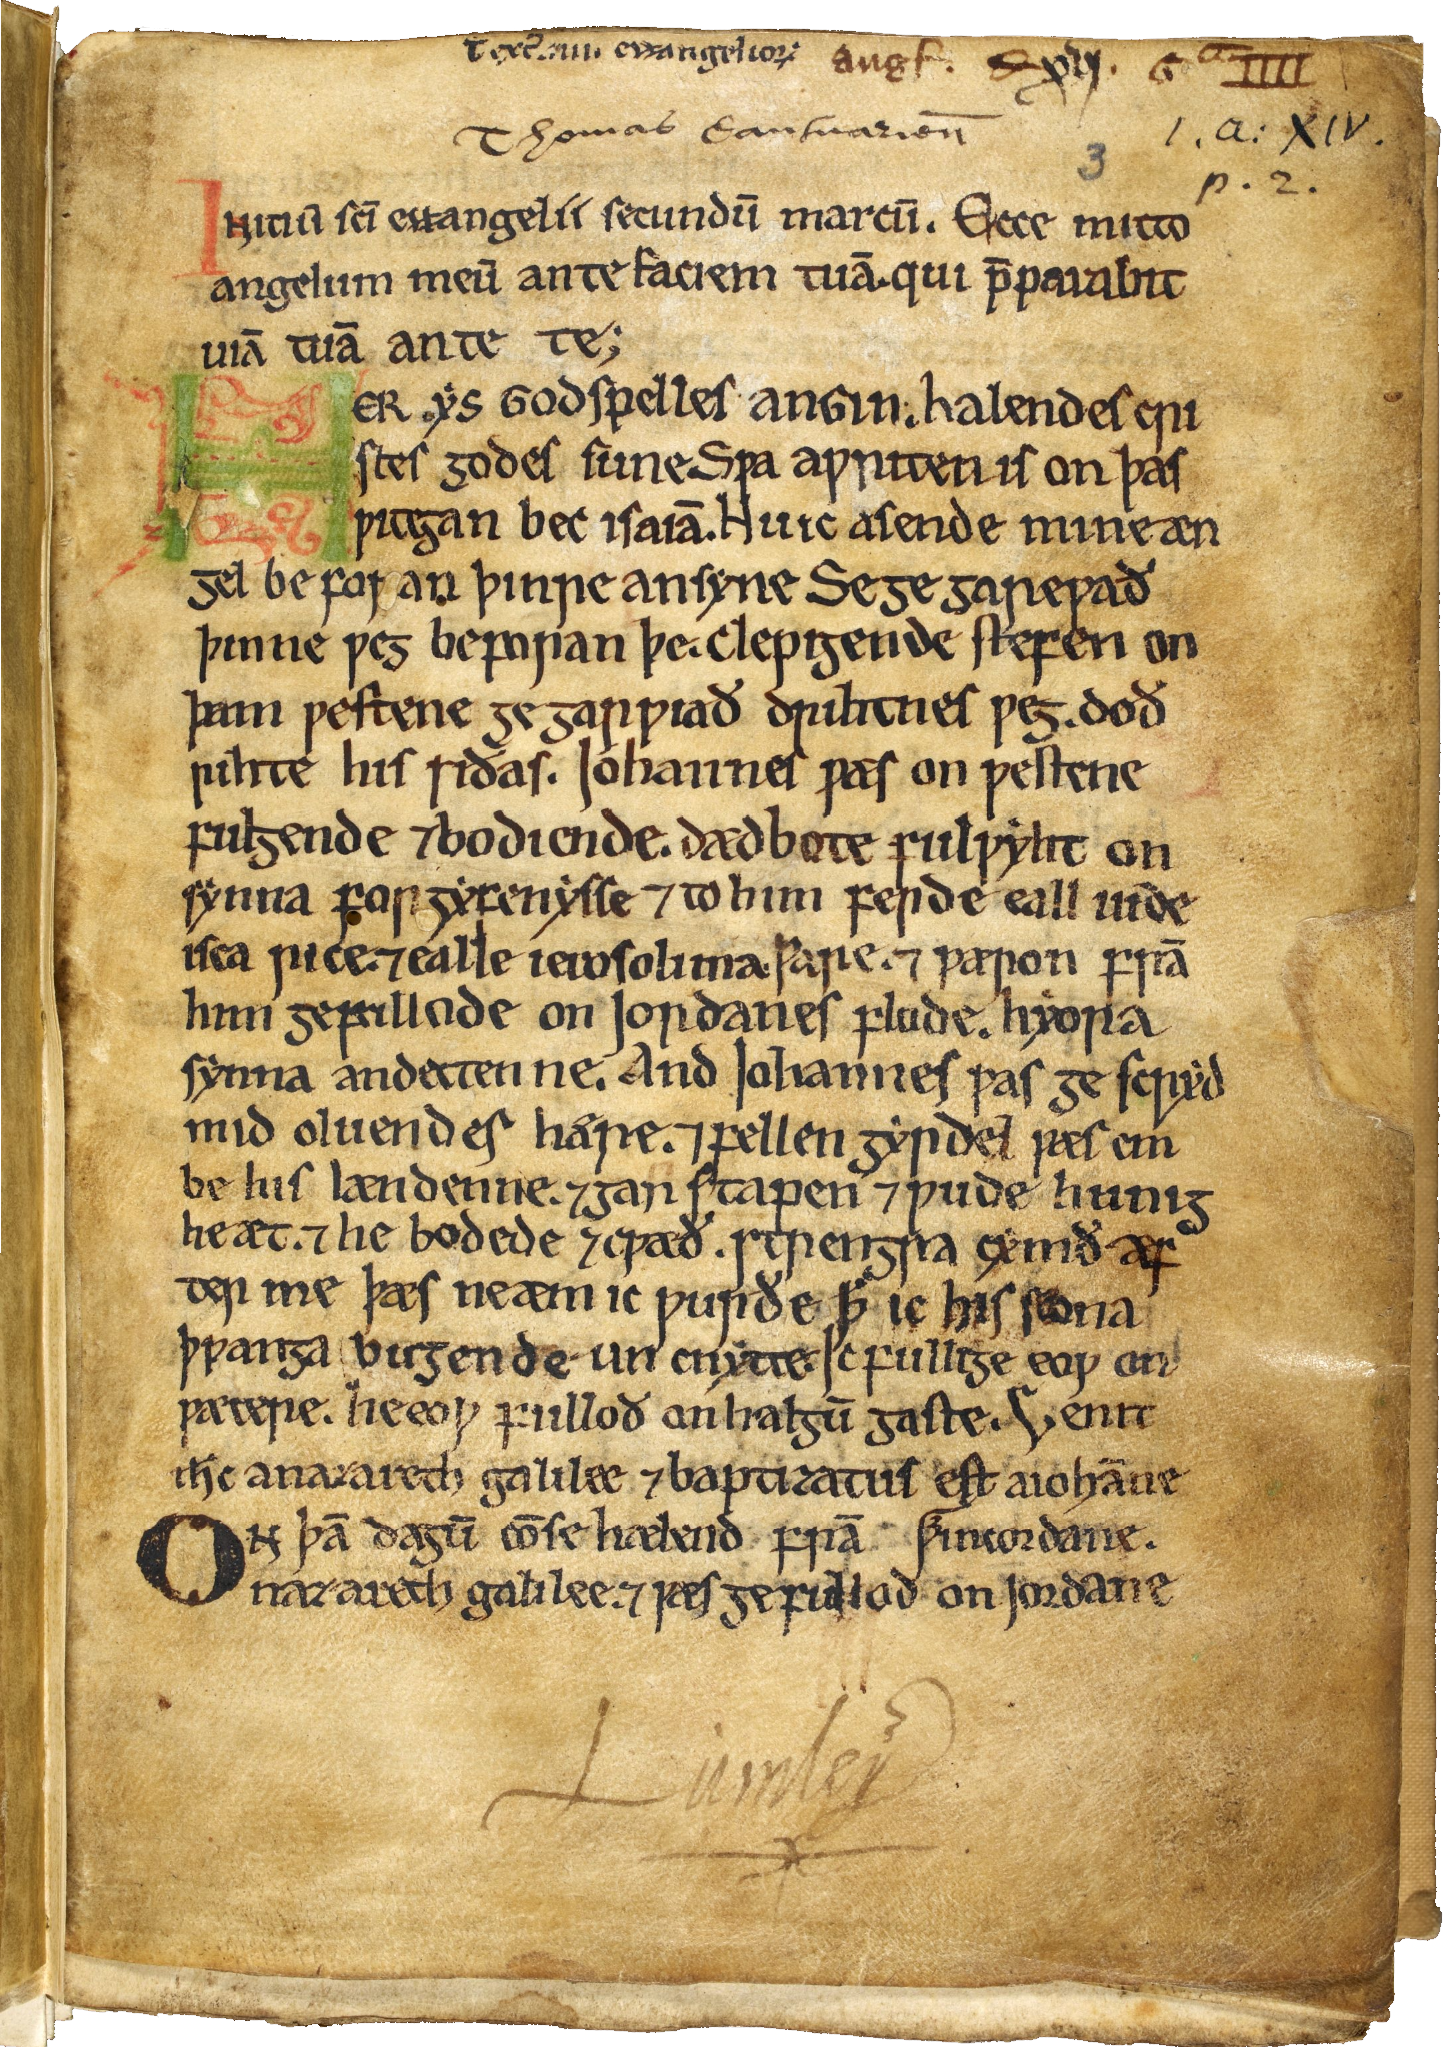 Text. iiii. euuangelior;
ang͛. xvj. G a IIII
Thomas Cantuarien̄
1. a: XIV.
3
p. 2.
Initiū sc̄i euuangelii secundū marcū. Ecce mitto
angelum meū ante faciem tuā. qui p̄parabit
uiā tuā ante te;
HER .ẏs Godspelles anGin. halendes cri
stes godes sune Sƿa aƿriten is on þas
ƿitegan bec isaiā. Hu ic asende mine æn
gel beforan þinre ansẏne Se ge gareƿað
þinne ƿeg beforan þe. Clepigende stefen on
þam ƿestene ge garƿiað drihtnes ƿeg. doð
rihte his sidas. Johannes ƿæs on ƿestene
fulgende ⁊ bodiende. dædbote fulƿẏht on
sẏnna forgẏfenẏsse ⁊ to him ferde eall iude
isca rice. ⁊ ealle ierosolima ƿare. ⁊ ƿæron frā
him gefullode on Jordanes flode. hẏora
sẏnna andettenne. And Johannes ƿas ge scrẏd
mid oluendes hære. ⁊ fellen gẏrdel ƿæs em
be his lændenne. ⁊ garstapen ⁊ ƿude hunig
he æt. ⁊ he bodede ⁊ cƿæð. strengra cẏmð æf
ter me þæs ne æm ic ƿurðe ꝥ ic his scona
þƿanga bugende un cnẏtte. Ic fullige eoƿ on
ƿætere. he eoƿ fullod on halgū gaste. Venit
ih̄c a nazareth galilee ⁊ baptizatus est a ioh̄anne
On þā dagū cō se hælend frā
nazareth galilee. ⁊ ƿæs gefullod on Jordane
Lumley